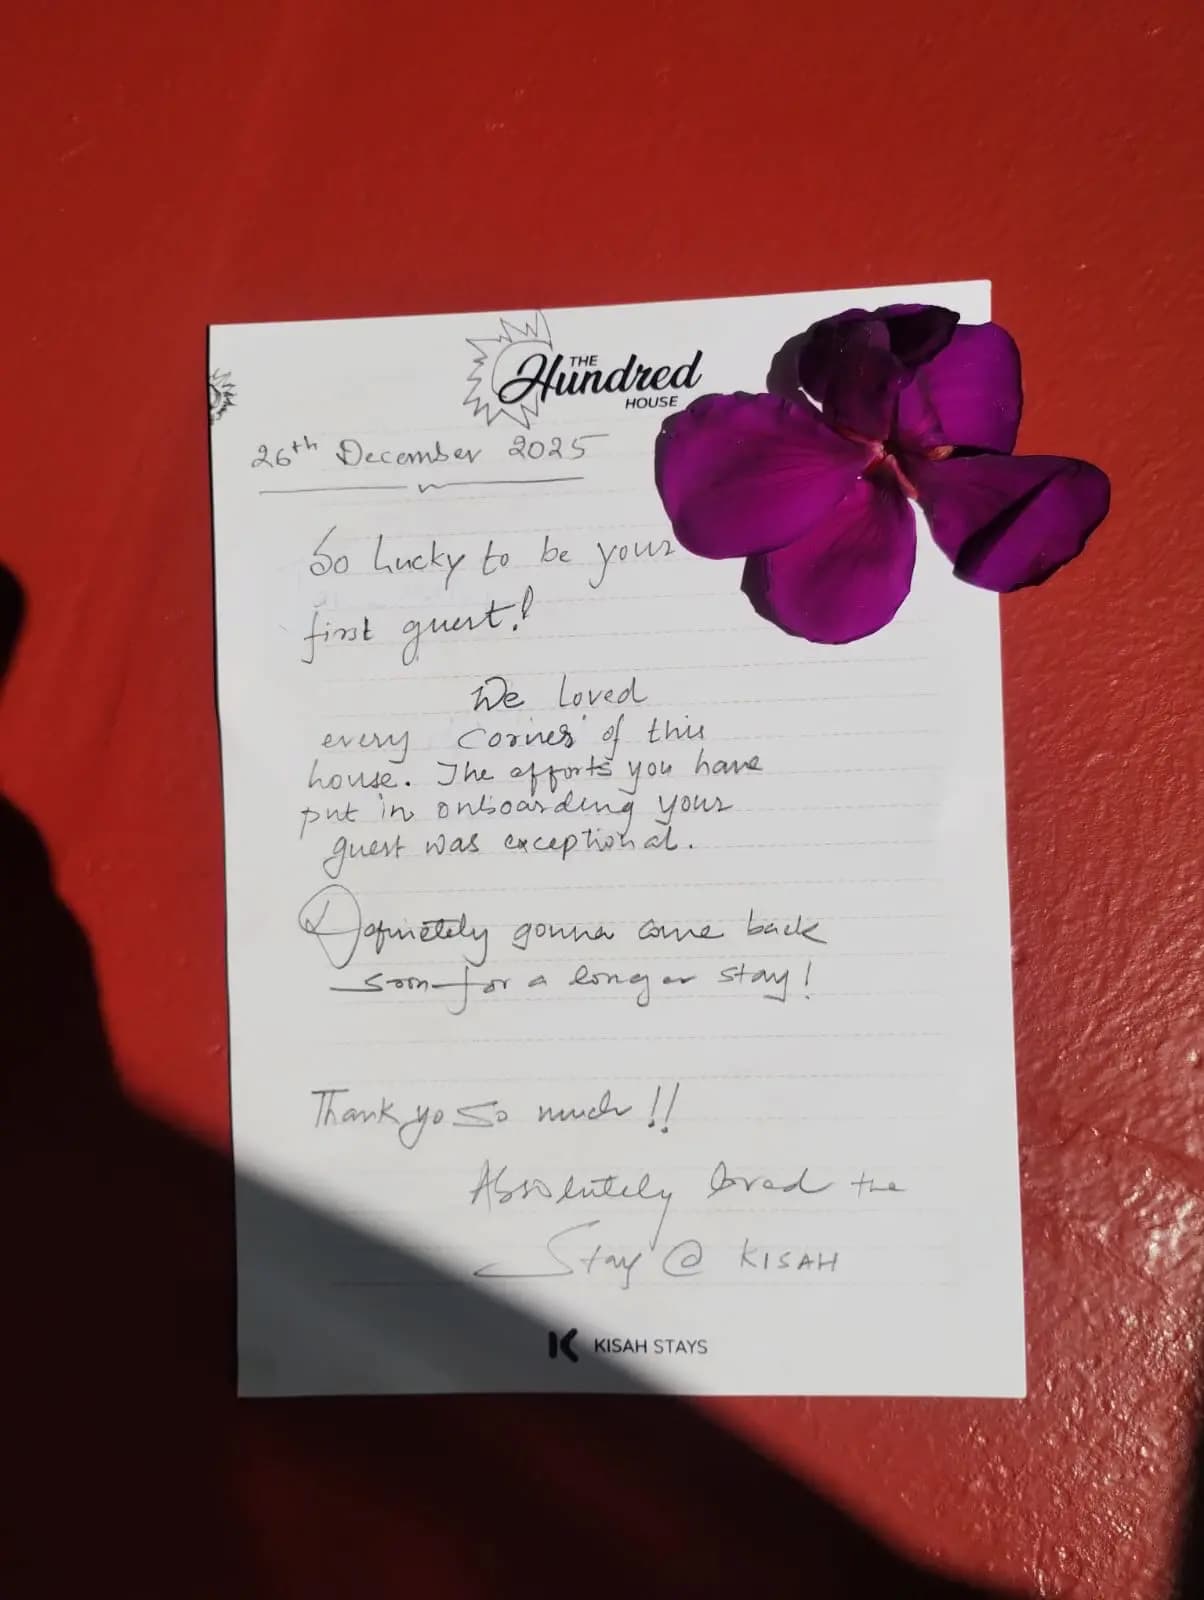 THE
Hundred
HOUSE
26th December 2025
So lucky to be your
first guest!
We loved
every corner of this
house. The efforts you have
put in onboarding your
guest was exceptional.
Definetely gonna come back
soon for a longer stay!
Thank yo so much!!
Absolutely loved the
Stay @ KISAH
KISAH STAYS